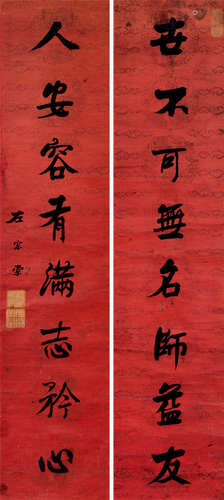 世不可無名師益友
人安容有滿志矜心
左宗棠